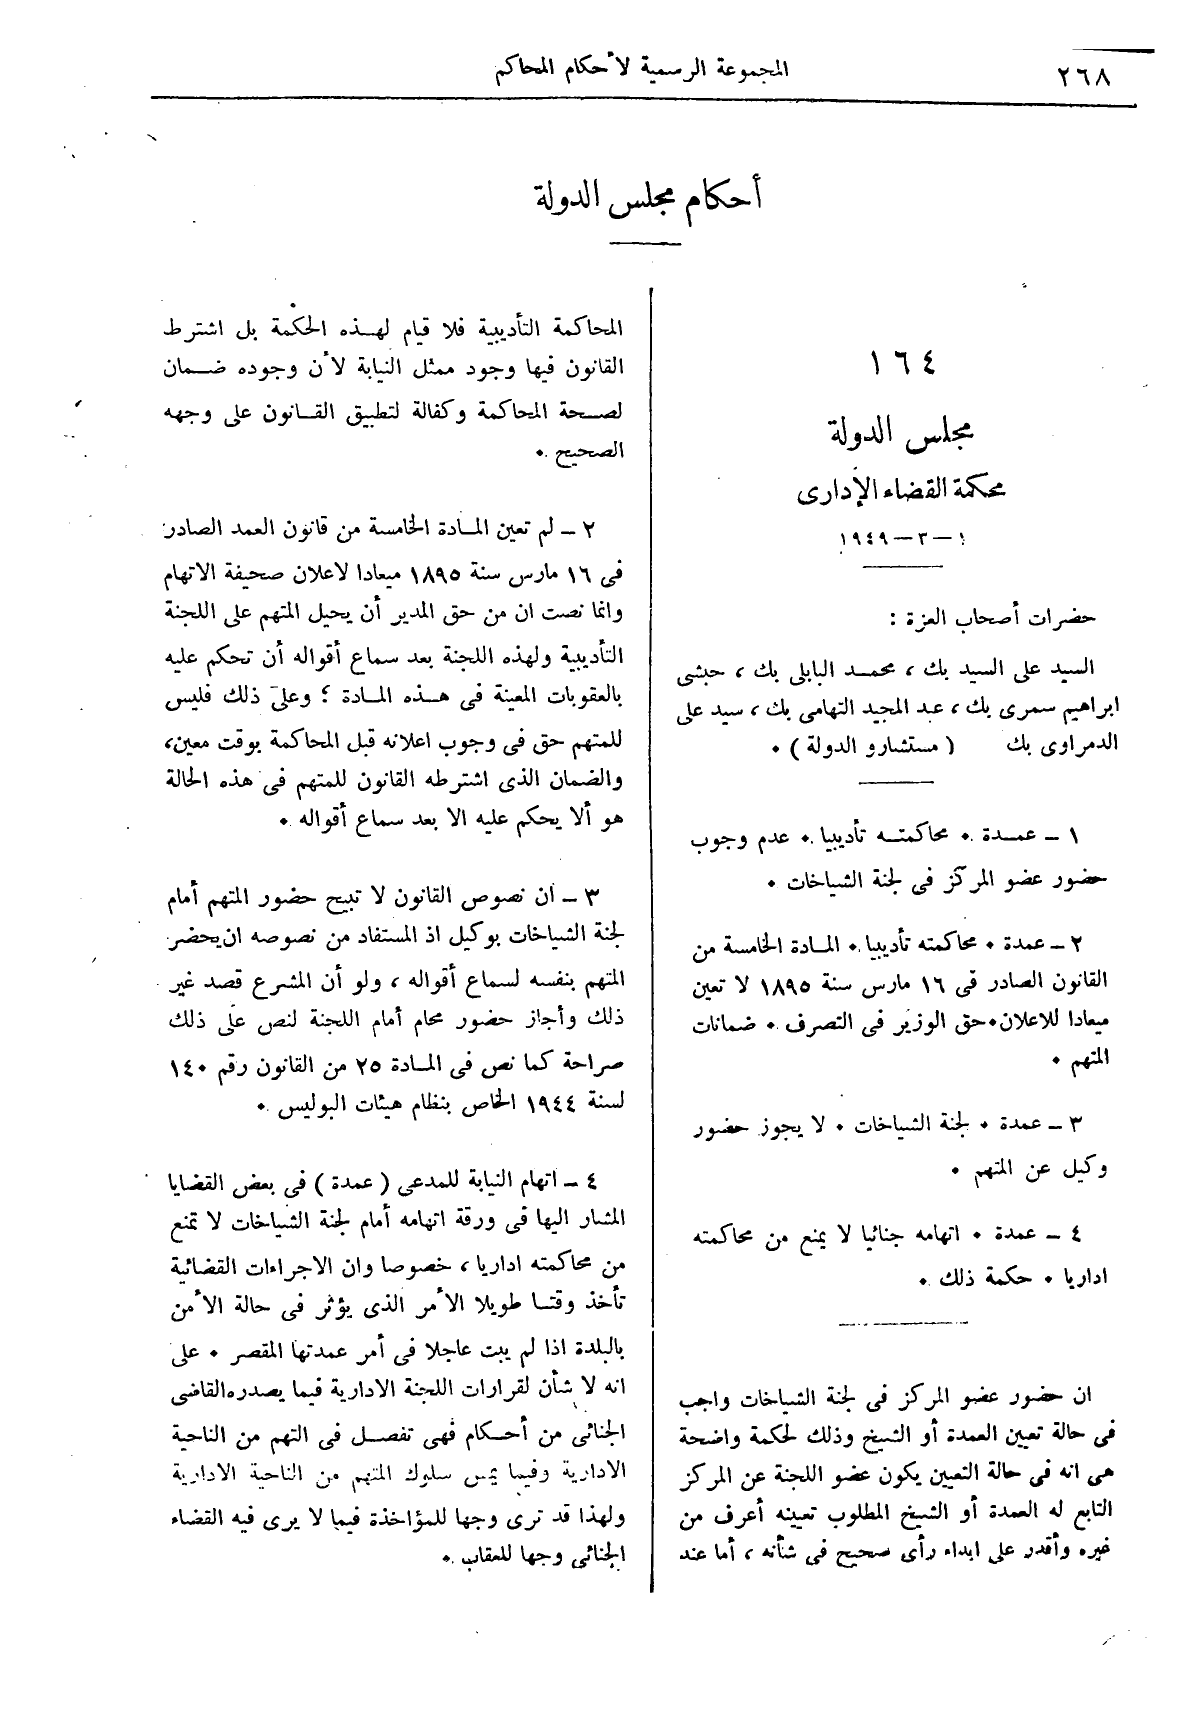 ٢٦٨
المجموعة الرسمية لأحكام المحاكم
أحكام مجلس الدولة
١٦٤
مجلس الدولة
محكمة القضاء الإدارى
١ – ٣ – ١٩٤٩
حضرات أصحاب العزة :
السيد على السيد بك ، محمد البابلى بك ، حبشى
ابراهيم سمرى بك ، عبد المجيد التهامى بك ، سيد على
الدمراوى بك ( مستشارو الدولة ) ٠
١ – عمدة ٠ محاكمته تأديبيا ٠ عدم وجوب
حضور عضو المركز فى لجنة الشياخات ٠
٢ – عمدة ٠ محاكمته تأديبيا ٠ المادة الخامسة من
القانون الصادر فى ١٦ مارس سنة ١٨٩٥ لا تعين
ميعادا للاعلان ٠ حق الوزير فى التصرف ٠ ضمانات
المتهم ٠
٣ – عمدة ٠ لجنة الشياخات ٠ لا يجوز حضور
وكيل عن المتهم ٠
٤ – عمدة ٠ اتهامه جنائيا لا يمنع من محاكمته
اداريا ٠ حكمة ذلك ٠
ان حضور عضو المركز فى لجنة الشياخات واجب
فى حالة تعيين العمدة أو الشيخ وذلك لحكمة واضحة
هى انه فى حالة التعيين يكون عضو اللجنة عن المركز
التابع له العمدة أو الشيخ المطلوب تعيينه أعرف من
غيره وأقدر على ابداء رأى صحيح فى شأنه ، أما عند
المحاكمة التأديبية فلا قيام لهذه الحكمة بل اشترط
القانون فيها وجود ممثل النيابة لأن وجوده ضمان
لصحة المحاكمة وكفالة لتطبيق القانون على وجهه
الصحيح ٠
٢ – لم تعين المادة الخامسة من قانون العمد الصادر
فى ١٦ مارس سنة ١٨٩٥ ميعادا لاعلان صحيفة الاتهام
وانما نصت ان من حق المدير أن يحيل المتهم على اللجنة
التأديبية ولهذه اللجنة بعد سماع أقواله أن تحكم عليه
بالعقوبات المعينة فى هذه المادة ؛ وعلى ذلك فليس
للمتهم حق فى وجوب اعلانه قبل المحاكمة بوقت معين،
والضمان الذى اشترطه القانون للمتهم فى هذه الحالة
هو ألا يحكم عليه الا بعد سماع أقواله ٠
٣ – ان نصوص القانون لا تبيح حضور المتهم أمام
لجنة الشياخات بوكيل اذ المستفاد من نصوصه ان يحضر
المتهم بنفسه لسماع أقواله ، ولو أن المشرع قصد غير
ذلك وأجاز حضور محام أمام اللجنة لنص على ذلك
صراحة كما نص فى المادة ٢٥ من القانون رقم ١٤٠
لسنة ١٩٤٤ الخاص بنظام هيئات البوليس ٠
٤ – اتهام النيابة للمدعى ( عمدة ) فى بعض القضايا
المشار اليها فى ورقة اتهامه أمام لجنة الشياخات لا تمنع
من محاكمته اداريا ، خصوصا وان الاجراءات القضائية
تأخذ وقتا طويلا الأمر الذى يؤثر فى حالة الأمن
بالبلدة اذا لم يبت عاجلا فى أمر عمدتها المقصر ٠ على
انه لا شأن لقرارات اللجنة الادارية فيما يصدره القاضى
الجنائى من أحكام فهى تفصل فى التهم من الناحية
الادارية وفيما يمس سلوك المتهم من الناحية الادارية
ولهذا قد ترى وجها للمؤاخذة فيما لا يرى فيه القضاء
الجنائى وجها للعقاب ٠